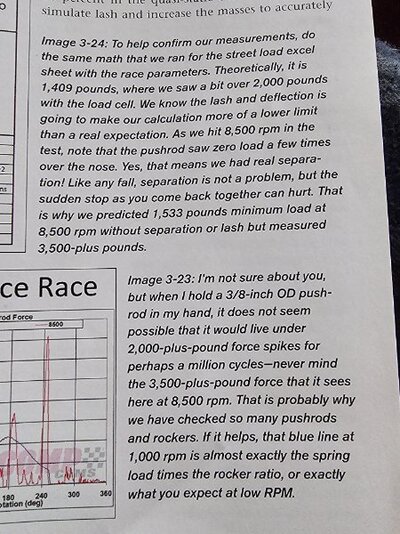 percent in the quasi-static
simulate lash and increase the masses to accurately
Image 3-24: To help confirm our measurements, do
the same math that we ran for the street load excel
sheet with the race parameters. Theoretically, it is
1,409 pounds, where we saw a bit over 2,000 pounds
with the load cell. We know the lash and deflection is
going to make our calculation more of a lower limit
than a real expectation. As we hit 8,500 rpm in the
test, note that the pushrod saw zero load a few times
over the nose. Yes, that means we had real separa-
tion! Like any fall, separation is not a problem, but the
sudden stop as you come back together can hurt. That
is why we predicted 1,533 pounds minimum load at
8,500 rpm without separation or lash but measured
3,500-plus pounds.
ce Race
rod Force
8500
180 240 300 360
otation (deg)
Image 3-23: I'm not sure about you,
but when I hold a 3/8-inch OD push-
rod in my hand, it does not seem
possible that it would live under
2,000-plus-pound force spikes for
perhaps a million cycles—never mind
the 3,500-plus-pound force that it sees
here at 8,500 rpm. That is probably why
we have checked so many pushrods
and rockers. If it helps, that blue line at
1,000 rpm is almost exactly the spring
load times the rocker ratio, or exactly
what you expect at low RPM.